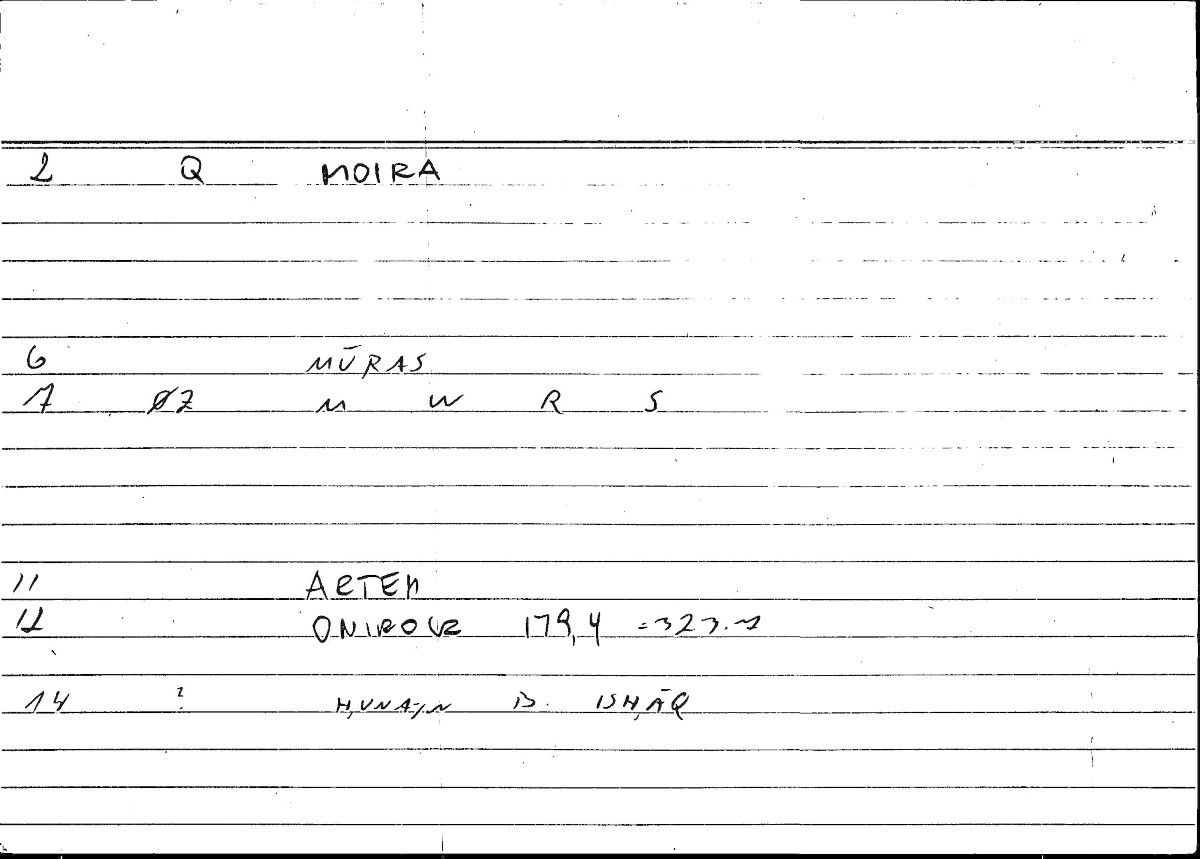 2 Q MOIRA
6 MŪRAS
7 ØZ M W R S
11 ARTEM
12 ONIROCR 179,4 =323.1
14 ? ḤUNAYN B. ISḤĀQ